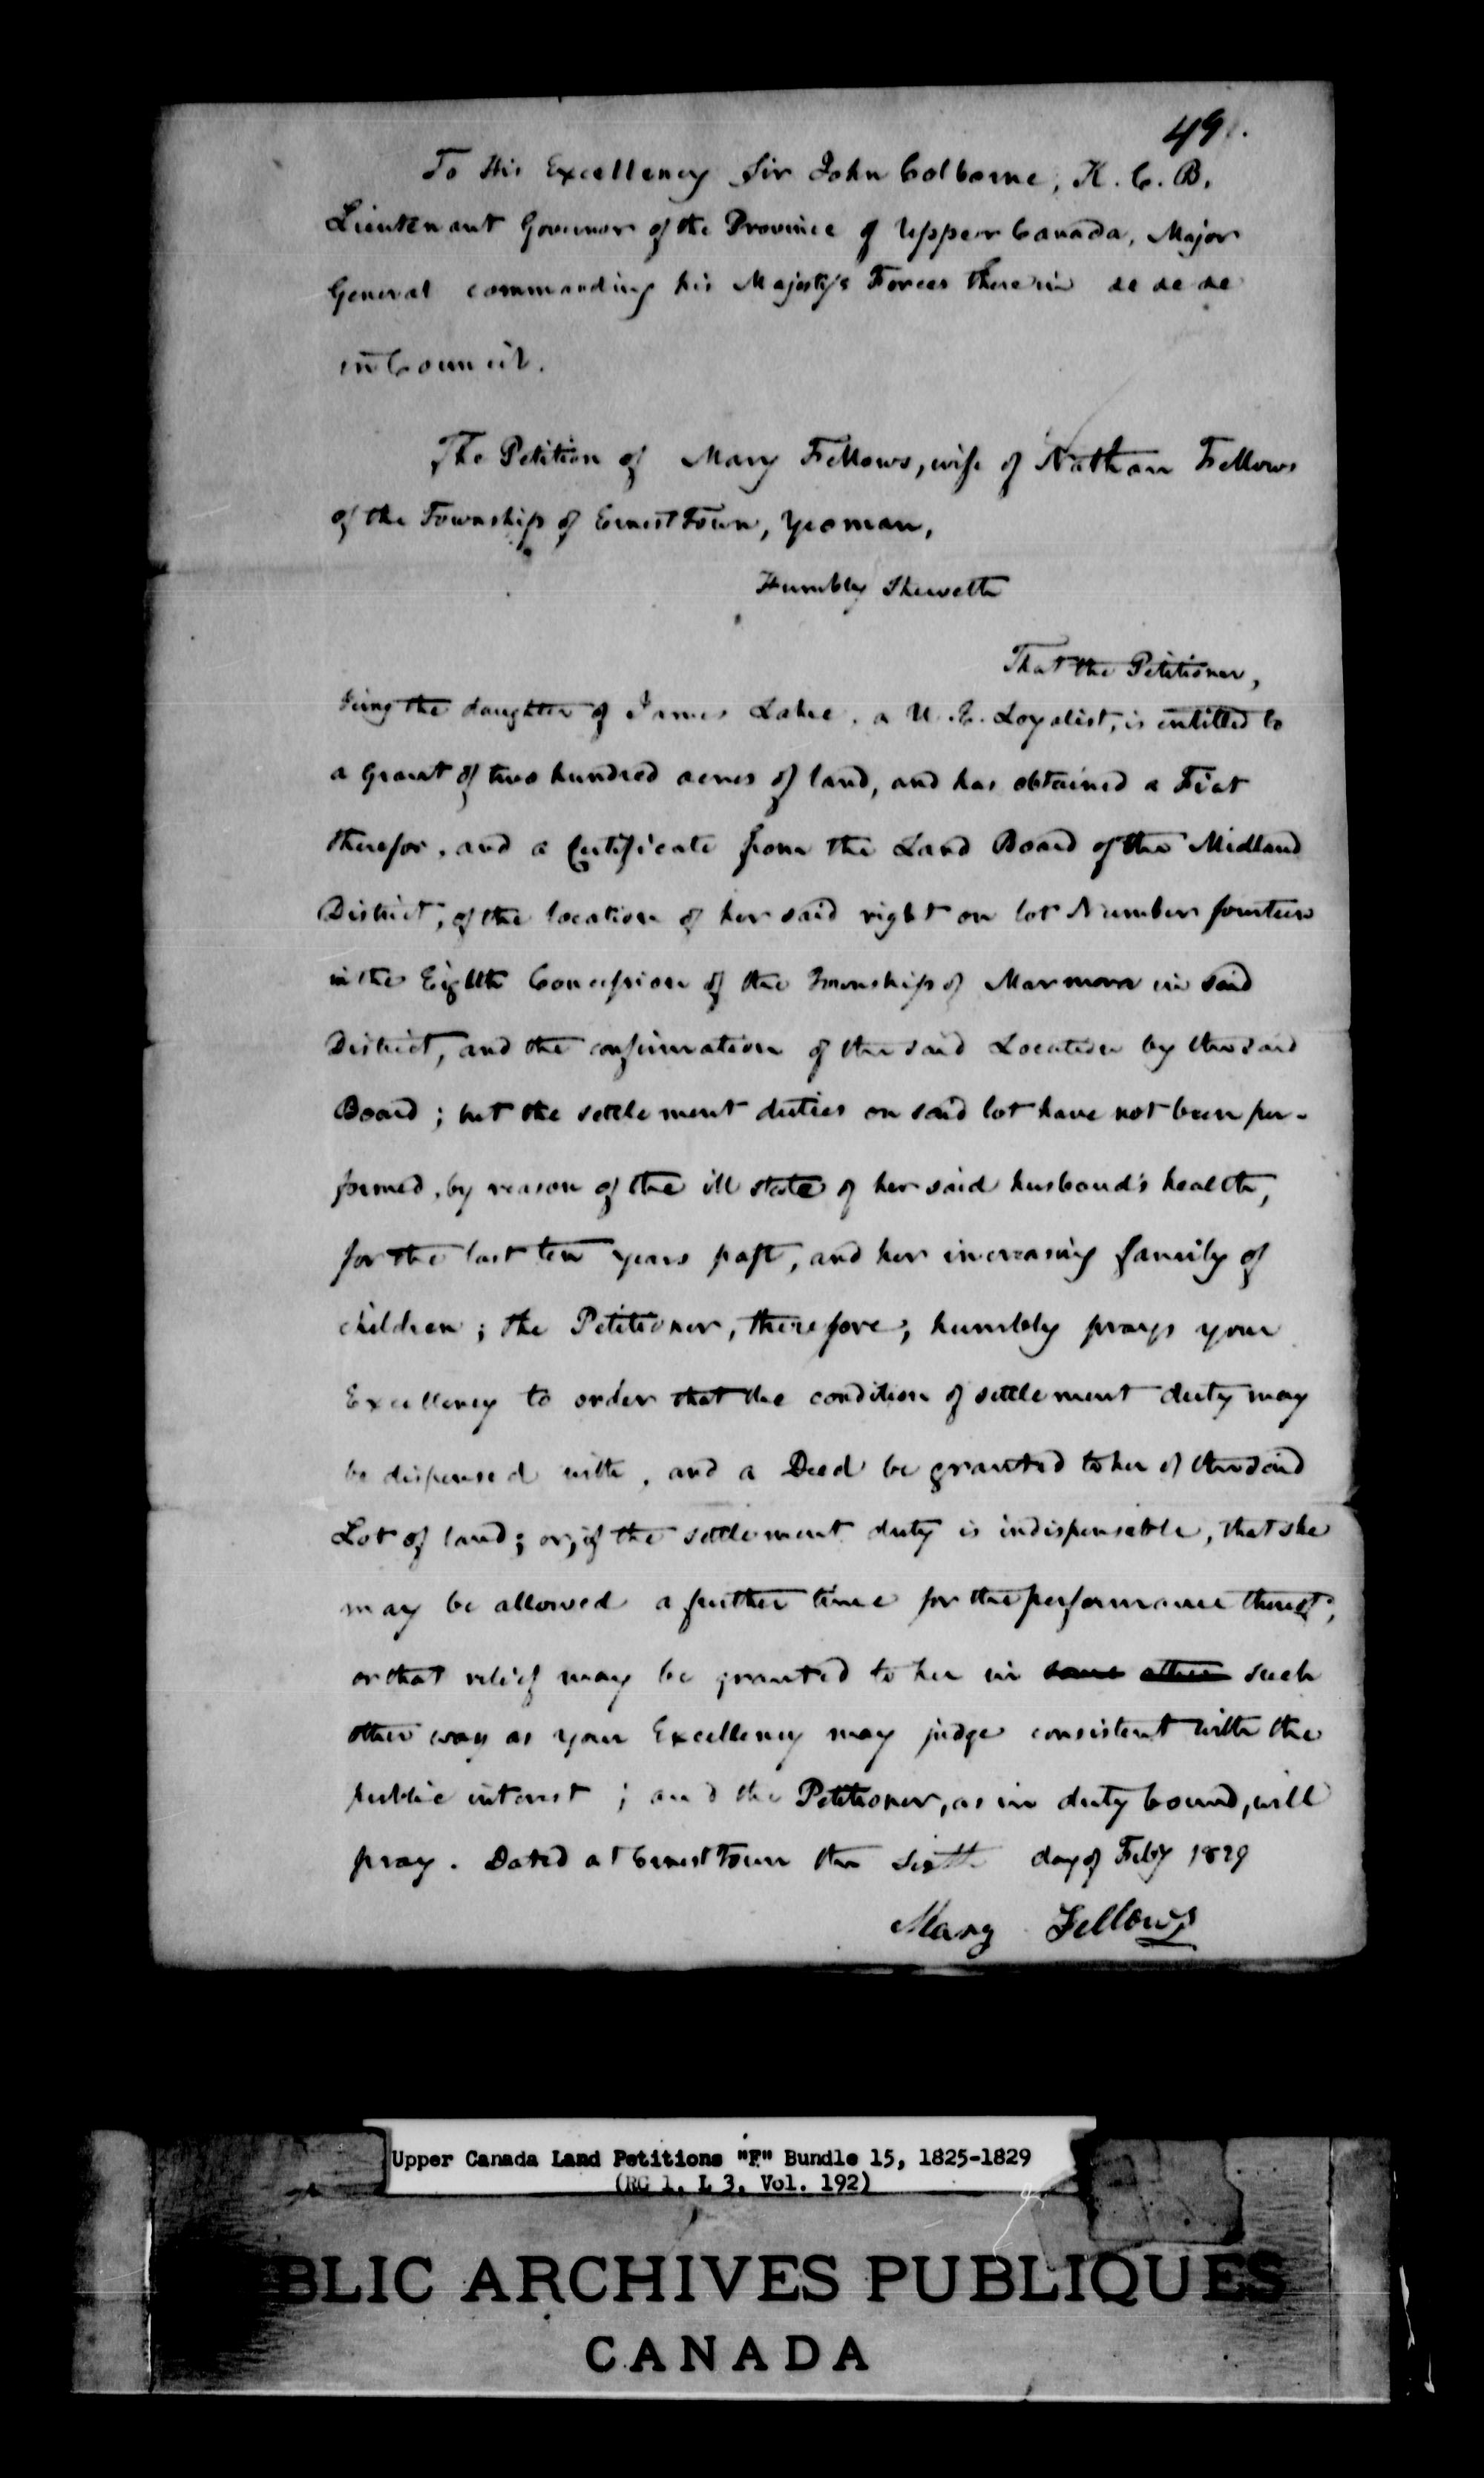 49.
To His Excellency Sir John Colborne, K. C. B.
Lieutenant Governor of the Province of Upper Canada, Major
General commanding his Majesty's Forces therein &c &c &c
in Council.
The Petition of Mary Fellows, wife of Nathan Fellows
of the Township of Ernest Town, Yeoman,
Humbly Sheweth
That the Petitioner,
being the daughter of James Lake, a U. E. Loyalist, is entitled to
a Grant of two hundred acres of land, and has obtained a Fiat
therefor, and a Certificate from the Land Board of the Midland
District, of the location of her said right on lot Number fourteen
in the Eighth Concession of the Township of Marmora in said
District, and the confirmation of the said Location by the said
Board; but the settlement duties on said lot have not been per-
formed, by reason of the ill state of her said husband's health,
for the last ten years past, and her increasing family of
children; the Petitioner, therefore, humbly prays your
Excellency to order that the condition of settlement duty may
be dispensed with, and a Deed be granted to her of the said
Lot of land; or, if the settlement duty is indispensable, that she
may be allowed a further time for the performance thereof,
or that relief may be granted to her in some other such
other way as your Excellency may judge consistent with the
public interest; and the Petitioner, as in duty bound, will
pray. Dated at Ernest Town the Sixth day of Feby 1829
Mary Fellows
Upper Canada Land Petitions "F" Bundle 15, 1825-1829
(RG 1, L 3, Vol. 192)
BLIC ARCHIVES PUBLIQUES
CANADA